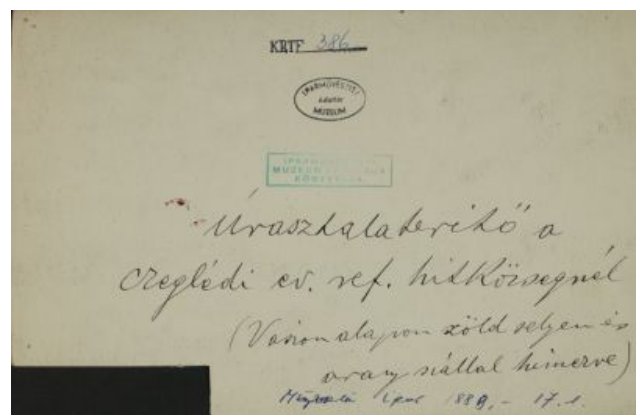 KRTF 386
IPARMŰVÉSZETI
Adattár
MÚZEUM
IPARMŰVÉSZETI
MÚZEUM
KÖNYVTÁRA
Úrasztalaterítő a
czeglédi ev. ref. hitközségnél
(Vászon alapon zöld selyem és
arany szállal hímezve)
ipar 188 - 17. l.